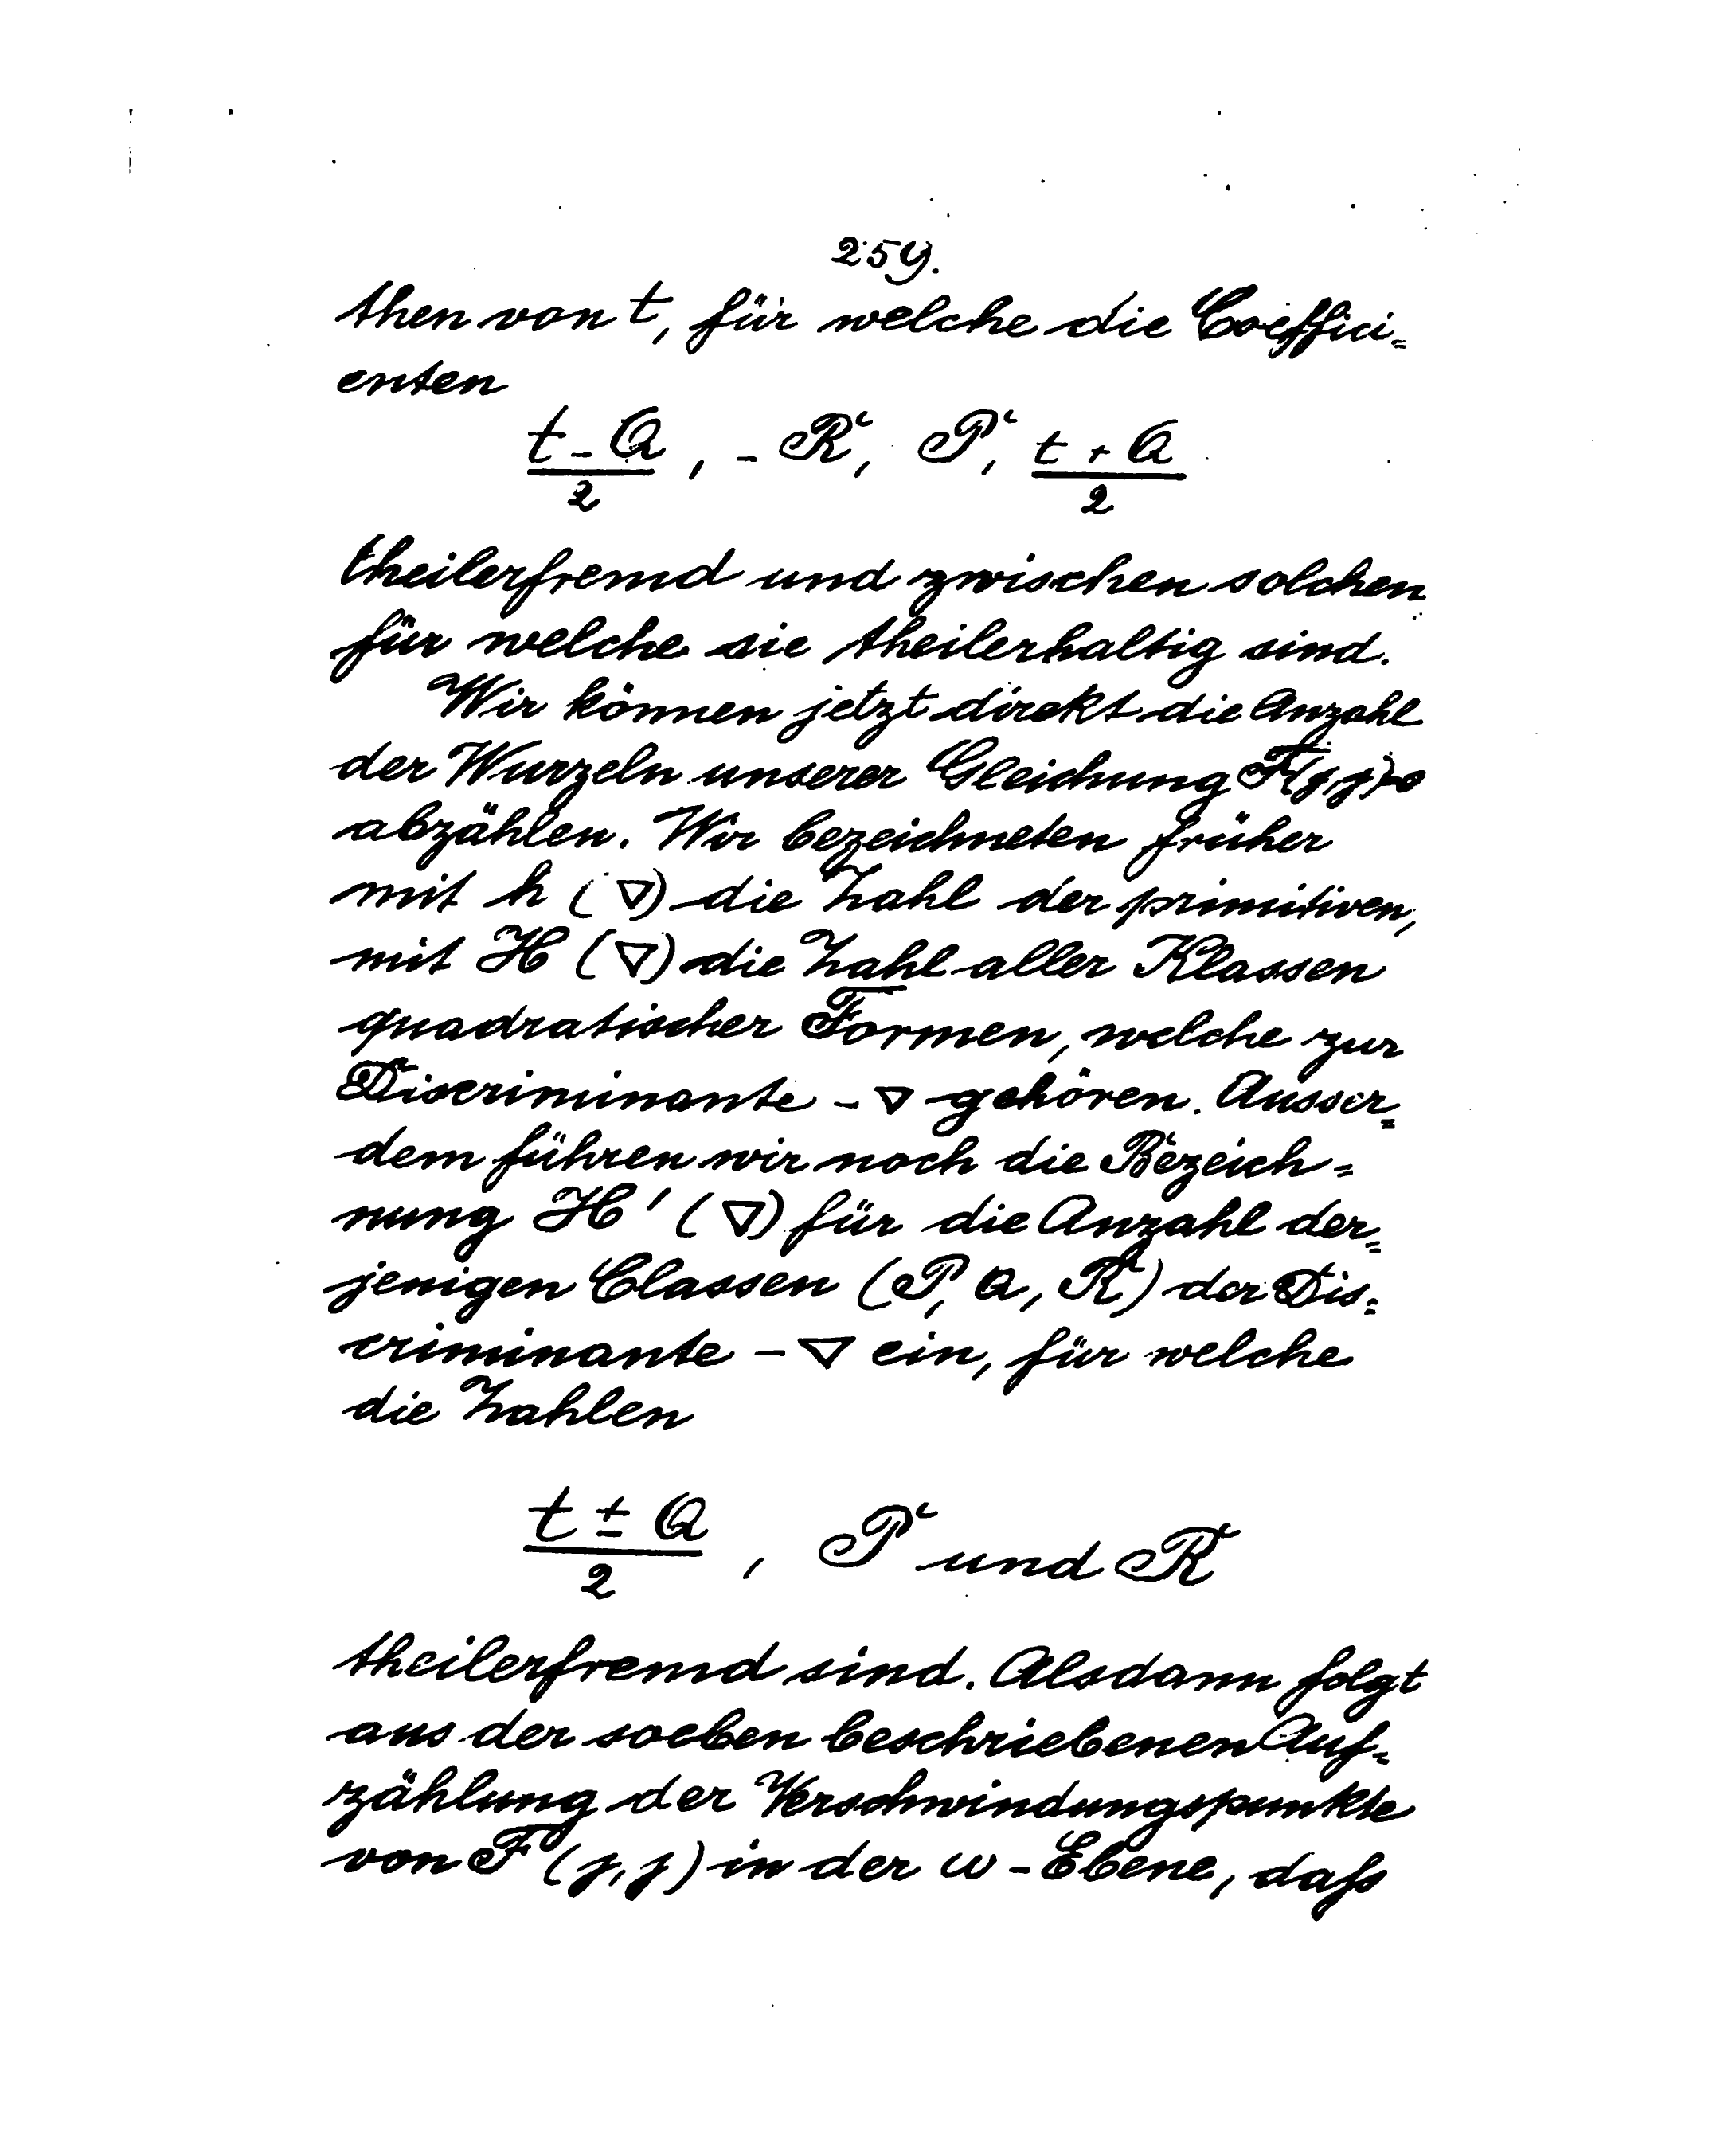 259.
then von t, für welche die Coeffici=
enten
(t - Q)/2, - R, P, (t + Q)/2
theilerfremd und zwischen solchen
für welche sie theilerhaltig sind.
Wir können jetzt direkt die Anzahl
der Wurzeln unserer Gleichung F(j,j)=0
abzählen. Wir bezeichneten früher
mit h (∇) die Zahl der primitiven,
mit H (∇) die Zahl aller Klassen
quadratischer Formen, welche zur
Discriminante - ∇ gehören. Ausser=
dem führen wir noch die Bezeich=
nung H' (∇) für die Anzahl der=
jenigen Classen (P, Q, R) der Dis=
criminante - ∇ ein, für welche
die Zahlen
(t ± Q)/2, P und R
theilerfremd sind. Alsdann folgt
aus der soeben beschriebenen Auf=
zählung der Verschwindungspunkte
von F (j, j) in der ω - Ebene, daſs